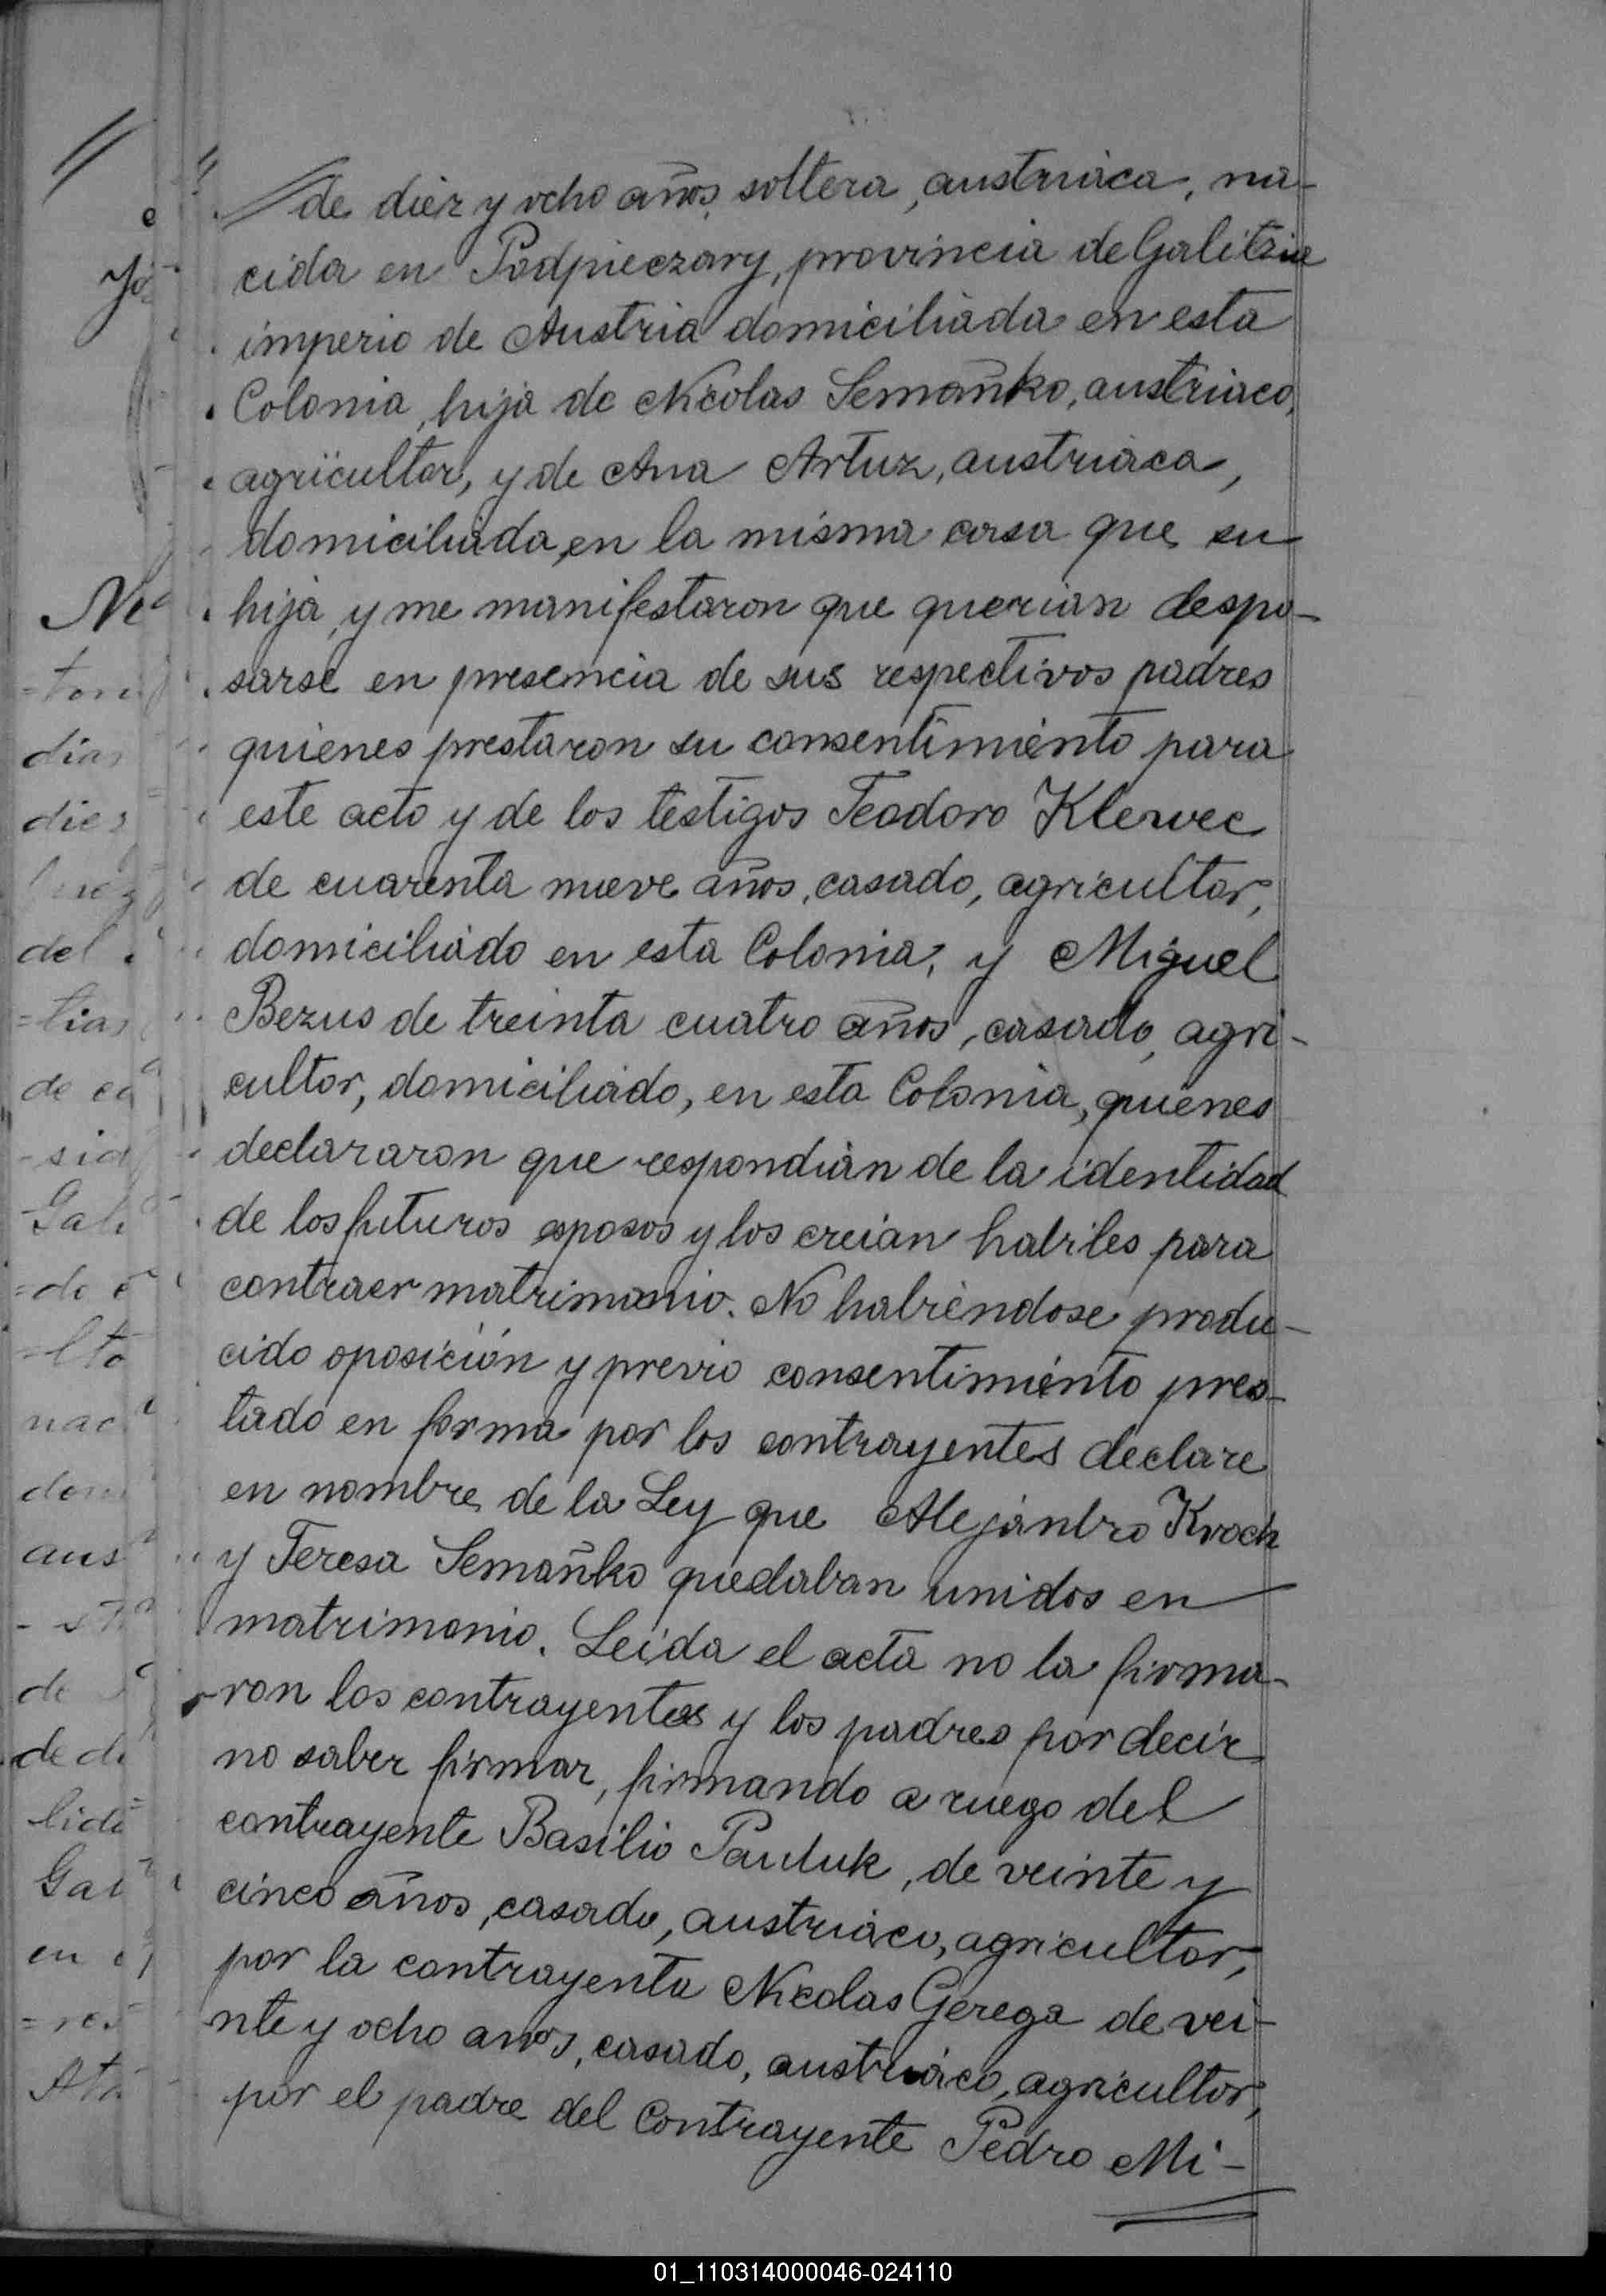 de diez y ocho años, soltera, austriaca, na-
cida en Podpieczary, provincia de Galitzia
imperio de Austria domiciliada en esta
Colonia, hija de Nicolas Semañko, austriaco,
agricultor, y de Ana Artuz, austriaca,
domiciliada, en la misma casa que su
hija, y me manifestaron que querian despo-
sarse en presencia de sus respectivos padres
quienes prestaron su consentimiento para
este acto y de los testigos Teodoro Klewec
de cuarenta nueve años, casado, agricultor,
domiciliado en esta Colonia, y Miguel
Bezus de treinta cuatro años, casado, agri-
cultor, domiciliado, en esta Colonia, quienes
declararon que respondian de la identidad
de los futuros esposos y los creian habiles para
contraer matrimonio. No habiendose produ-
cido oposición y previo consentimiento pres-
tado en forma por los contrayentes declare
en nombre de la Ley que Alejandro Kroch
y Teresa Semañko quedaban unidos en
matrimonio. Leida el acta no la firma-
ron los contrayentes y los padres por decir
no saber firmar, firmando a ruego del
contrayente Basilio Pauluk, de veinte y
cinco años, casado, austriaco, agricultor,
por la contrayenta Nicolas Gerega de vei-
nte y ocho anos, casado, austriaco, agricultor,
por el padre del Contrayente Pedro Mi-
01_110314000046-024110